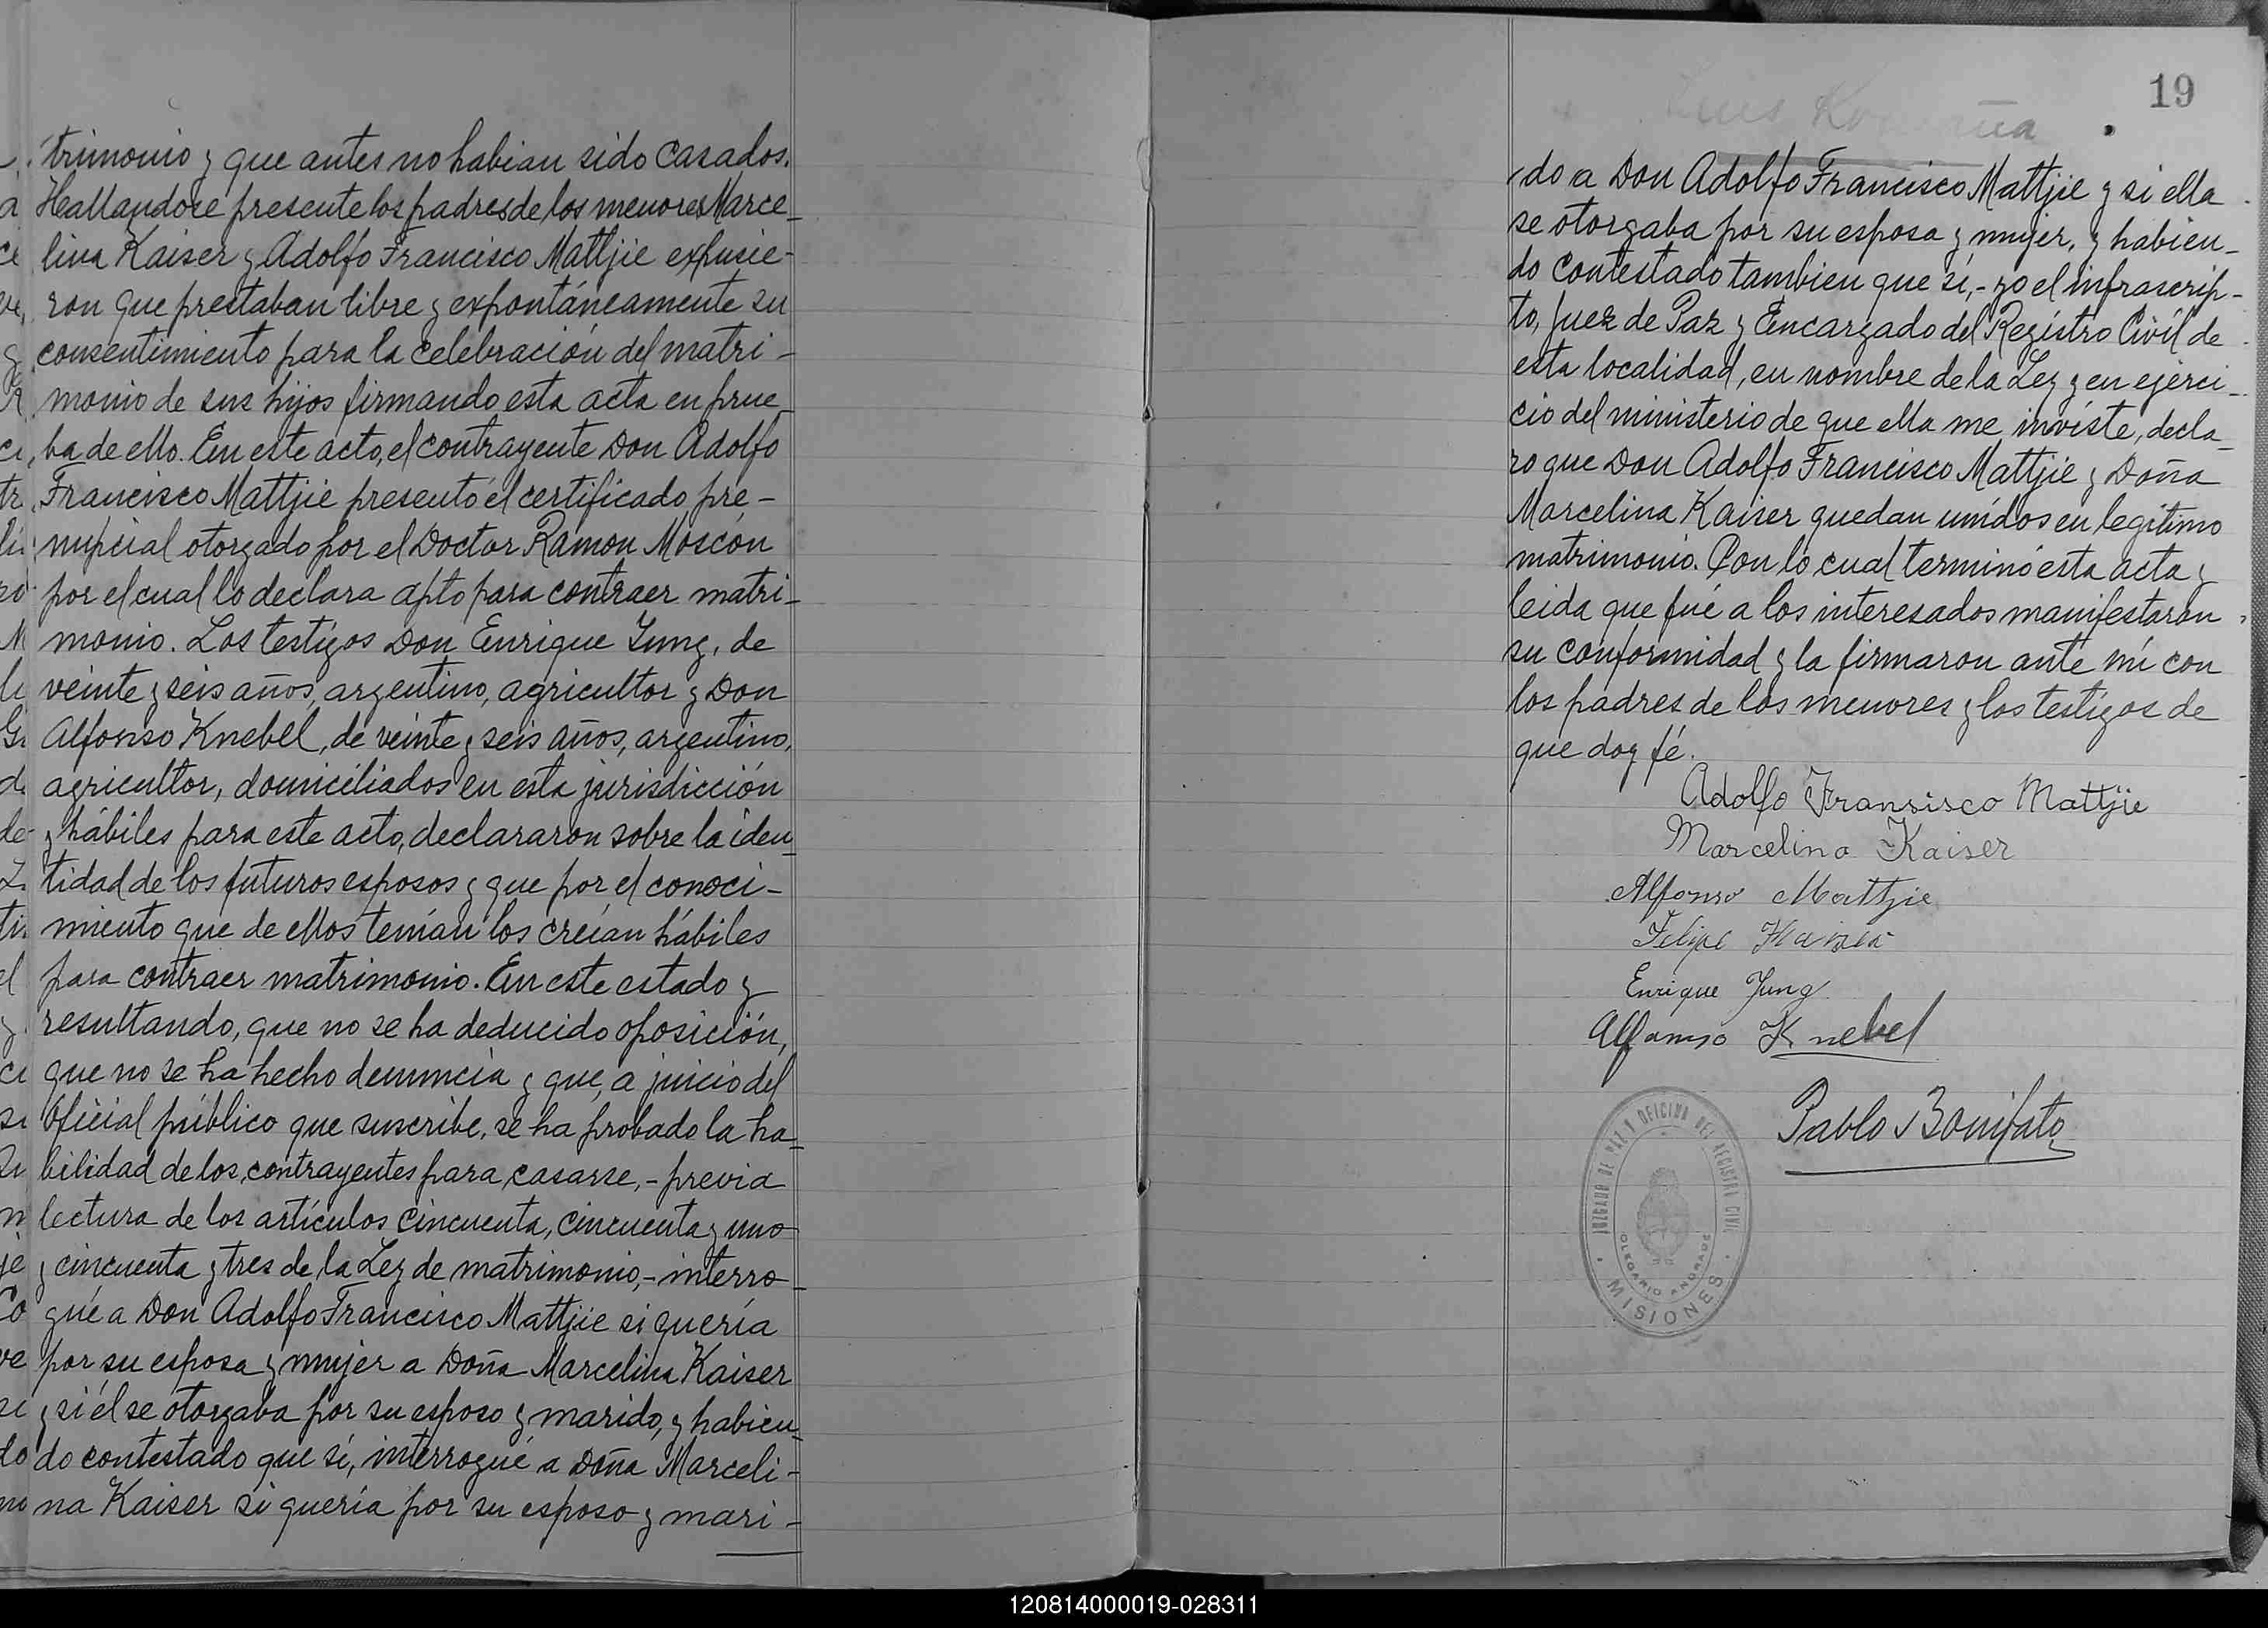 trimonio y que antes no habian sido casados.
Hallandose presente los padres de los menores Marce-
lina Kaiser y Adolfo Francisco Mattjie expusie-
ron que prestaban libre y expontáneamente su
consentimiento para la celebración del matri-
monio de sus hijos firmando esta acta en prue-
ba de ello. En este acto, el contrayente Don Adolfo
Francisco Mattjie presentó el certificado pre-
nupcial otorgado por el Doctor Ramon Moscón
por el cual lo declara apto para contraer matri-
monio. Los testigos Don Enrique Jung, de
veinte y seis años, argentino, agricultor y Don
Alfonso Knebel, de veinte y seis años, argentino,
agricultor, domiciliados en esta jurisdicción
y hábiles para este acto, declararon sobre la iden-
tidad de los futuros esposos y que por el conoci-
miento que de ellos tenían los creían hábiles
para contraer matrimonio. En este estado y
resultando, que no se ha deducido oposición,
que no se ha hecho denuncia y que, a juicio del
oficial público que suscribe, se ha probado la ha-
bilidad de los contrayentes para casarse,- previa
lectura de los artículos cincuenta, cincuenta y uno
y cincuenta y tres de la Ley de matrimonio,- interro-
gué a Don Adolfo Francisco Mattjie si quería
por su esposa y mujer a Doña Marcelina Kaiser
y si él se otorgaba por su esposo y marido, y habien-
do contestado que sí, interrogué a Doña Marceli-
na Kaiser si quería por su esposo y mari-
19
do a Don Adolfo Francisco Mattjie y si ella
se otorgaba por su esposa y mujer, y habien-
do contestado tambien que sí,- yo el infrascrip-
to, Juez de Paz y Encargado del Registro Civil de
esta localidad, en nombre de la Ley y en ejerci-
cio del ministerio de que ella me inviste, decla-
ro que Don Adolfo Francisco Mattjie y Doña
Marcelina Kaiser quedan unidos en legítimo
matrimonio. Con lo cual terminó esta acta y
leida que fué a los interesados manifestaron
su conformidad y la firmaron ante mí con
los padres de los menores y los testigos de
que doy fé.
Adolfo Fransisco Mattjie
Marcelina Kaiser
Alfonso Mattjie
Felipe Kaiser
Enrique Jung
Alfonso Knebel
Pablo Bonifato
JUZGADO DE PAZ Y OFICINA DEL REGISTRO CIVIL
OLEGARIO ANDRADE
MISIONES
120814000019-028311